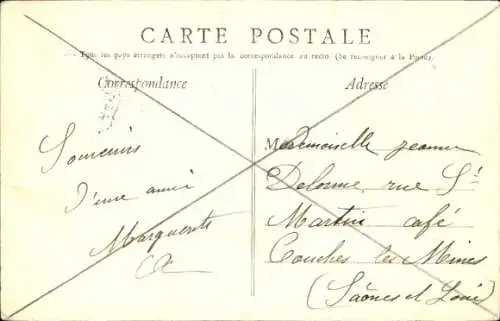 CARTE POSTALE
Tous les pays étrangers n'acceptent pas la correspondance au recto (Se renseigner à la Poste)
Correspondance
Souvenirs
d'une amie
Marguerite
Adresse
Mademoiselle Jeanne
Delorme rue St
Martin café
Couches les Mines
(Saônes et Loire)